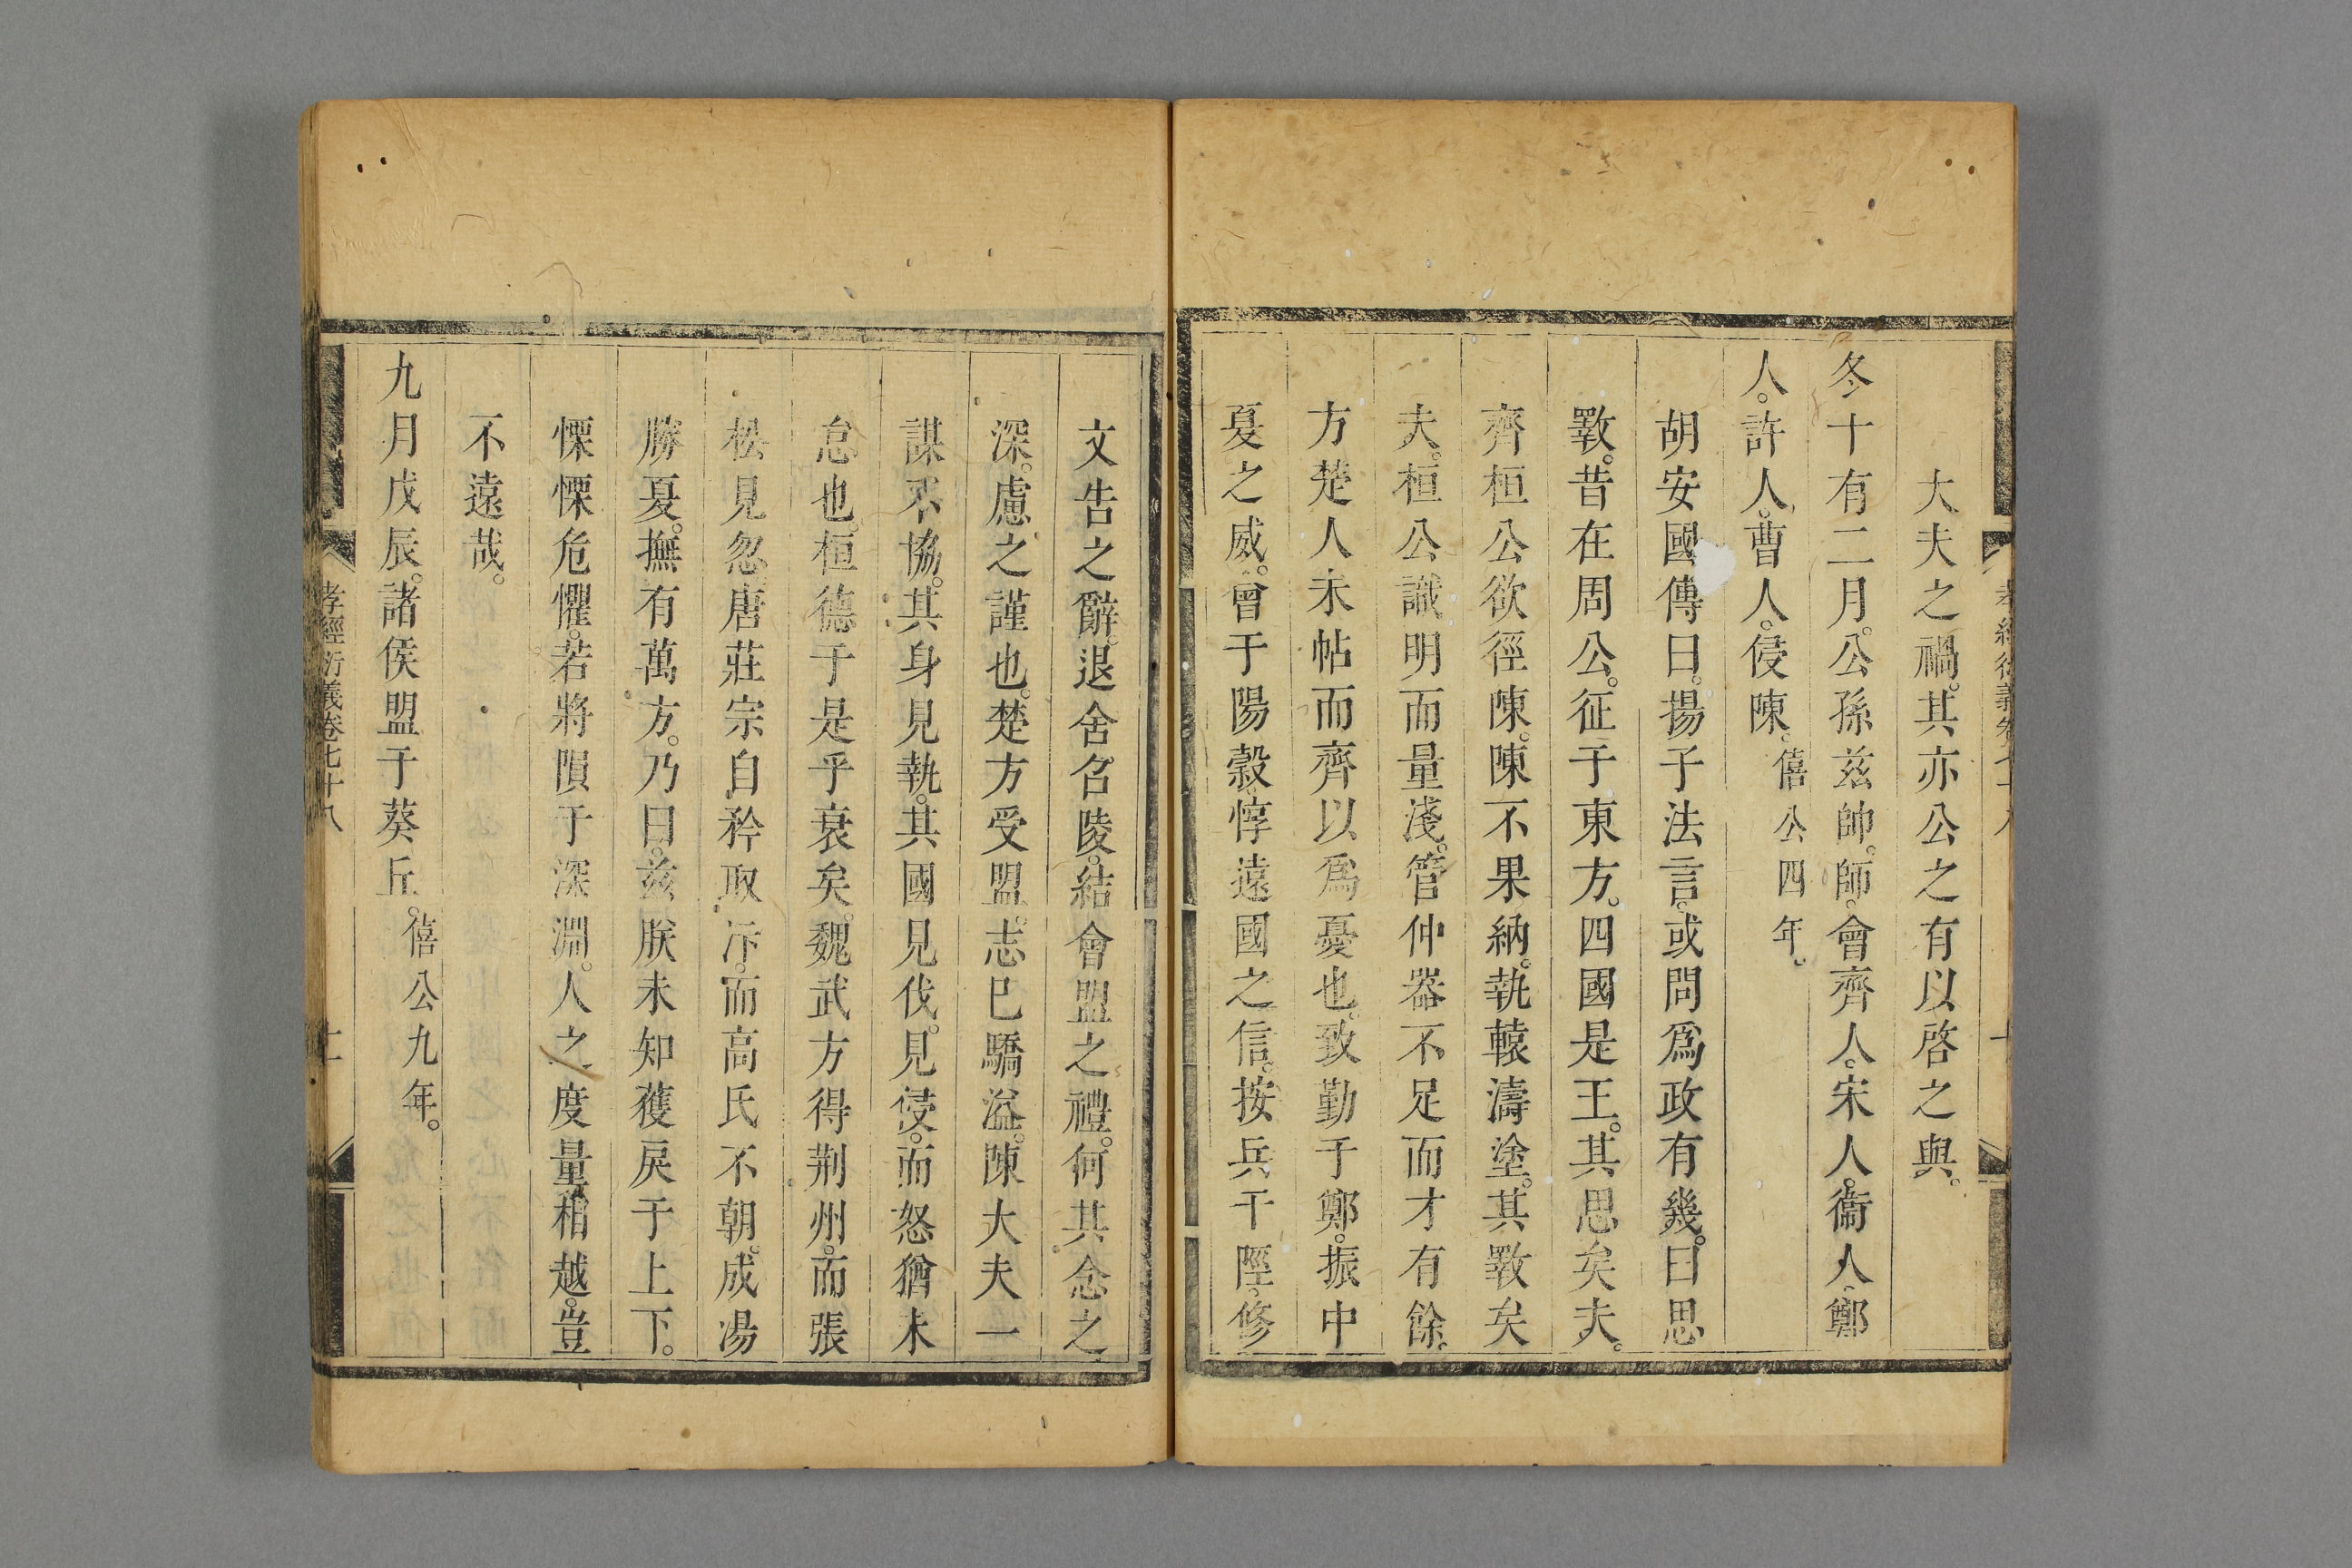 大夫之禍。其亦公之有以啓之與。
冬十有二月。公孫茲帥。師。會齊人。宋人。衞人。鄭
人。許人。曹人。侵陳。僖公四年。
胡安國傳曰。揚子法言。或問爲政有幾。曰思
斁。昔在周公。征于東方。四國是王。其思矣夫。
齊桓公欲徑陳。陳不果納。執轅濤塗。其斁矣
夫。桓公識明而量淺。管仲器不足而才有餘。
方楚人未帖而齊以爲憂也。致勤于鄭。振中
夏之威。會于陽穀。惇遠國之信。按兵于陘。修
孝經衍義卷七十八
文告之辭。退舍召陵。結會盟之禮。何其念之
深。慮之謹也。楚方受盟。志已驕溢。陳大夫一
謀不協。其身見執。其國見伐。見侵。而怒猶未
怠也。桓德于是乎衰矣。魏武方得荆州。而張
松見忽。唐莊宗自矜取汴。而高氏不朝。成湯
勝夏。撫有萬方。乃曰。茲朕未知獲戾于上下。
慄慄危懼。若將隕于深淵。人之度量相越。豈
不遠哉。
九月戊辰。諸侯盟于葵丘。僖公九年。
孝經衍義卷七十八